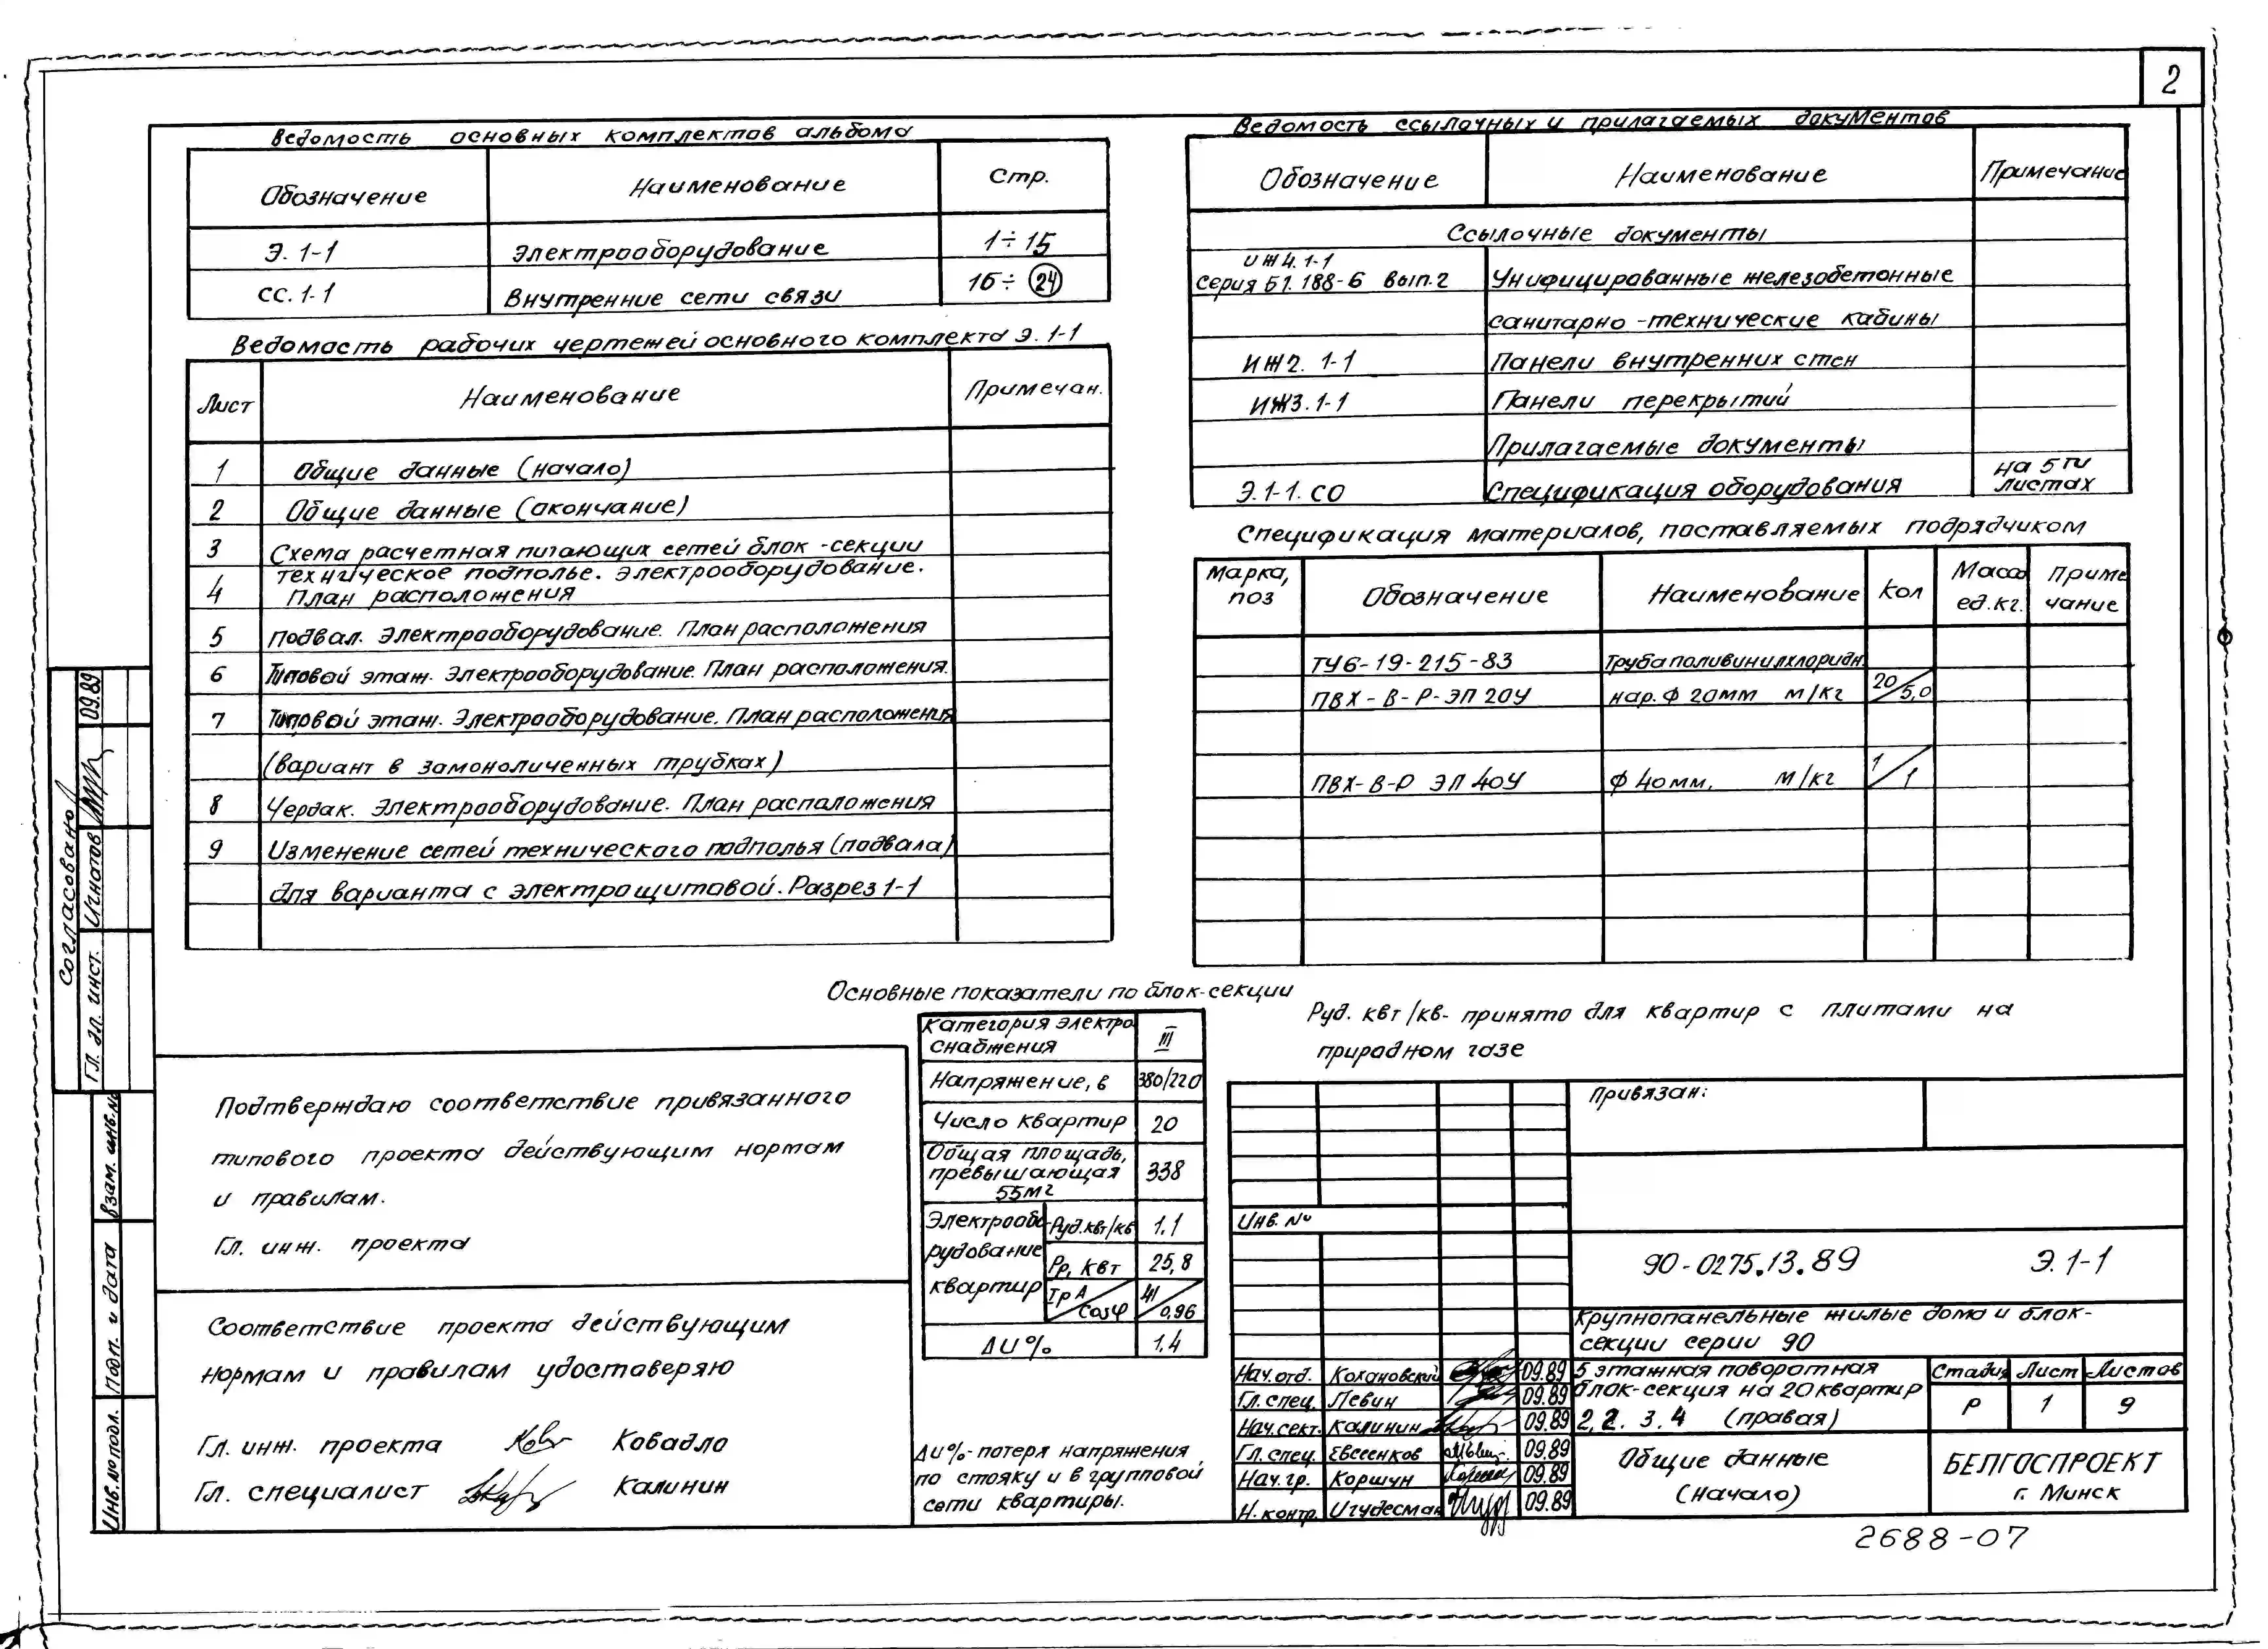 2
Ведомость основных комплектов альбома
Обозначение Наименование Стр.
Э. 1-1 Электрооборудование 1÷15
СС. 1-1 Внутренние сети связи 16÷24
Ведомость рабочих чертежей основного комплекта Э. 1-1
Лист Наименование Примечан.
1 Общие данные (начало)
2 Общие данные (окончание)
3 Схема расчетная питающих сетей блок-секции
4 Техническое подполье. Электрооборудование.
План расположения
5 Подвал. Электрооборудование. План расположения
6 Типовой этаж. Электрооборудование. План расположения.
7 Типовой этаж. Электрооборудование. План расположения
(вариант в замоноличенных трубках)
8 Чердак. Электрооборудование. План расположения
9 Изменение сетей технического подполья (подвала)
для варианта с электрощитовой. Разрез 1-1
Ведомость ссылочных и прилагаемых документов
Обозначение Наименование Примечание
Ссылочные документы
ИЖ4. 1-1
серия Б1. 188-6 вып. 2 Унифицированные железобетонные
санитарно-технические кабины
ИЖ2. 1-1 Панели внутренних стен
ИЖ3. 1-1 Панели перекрытий
Прилагаемые документы
Э. 1-1. СО Спецификация оборудования на 5ти листах
Спецификация материалов, поставляемых подрядчиком
Марка, поз Обозначение Наименование Кол Масса ед. кг. Примечание
ТУ6-19-215-83 Труба поливинилхлоридн.
ПВХ-В-Р-ЭП 20У нар. ф 20мм м/кг 20/5,0
ПВХ-В-Р ЭП 40У ф 40мм, м/кг 1/1
Основные показатели по блок-секции
Категория электроснабжения III
Напряжение, в 380/220
Число квартир 20
Общая площадь, превышающая 55м2 338
Электрооборудование квартир Руд. квт/кв 1,1
Рр, квт 25,8
Iр А/cosφ 41/0,96
ΔU% 1,4
Руд. квт/кв- принято для квартир с плитами на
природном газе
ΔU%- потеря напряжения
по стояку и в групповой
сети квартиры.
Подтверждаю соответствие привязанного
типового проекта действующим нормам
и правилам.
Гл. инж. проекта
Соответствие проекта действующим
нормам и правилам удостоверяю
Гл. инж. проекта Ковадло
Гл. специалист Калинин
Согласовано
Гл. эл. инст. Игнатов 09.89
Взам. инв. №
Подп. и дата
Инв. № подл.
Привязан:
Инв. №
90-0275.13.89 Э. 1-1
Крупнопанельные жилые дома и блок-
секции серии 90
Нач. отд. Кохановский 09.89
Гл. спец. Левин 09.89
Нач. сект. Калинин 09.89
Гл. спец. Евсеенков 09.89
Нач. гр. Коршун 09.89
Н. контр. Игудесман 09.89
5 этажная поворотная
блок-секция на 20 квартир
2, 2. 3. 4 (правая)
Стадия Лист Листов
Р 1 9
Общие данные
(начало)
БЕЛГОСПРОЕКТ
г. Минск
2688-07